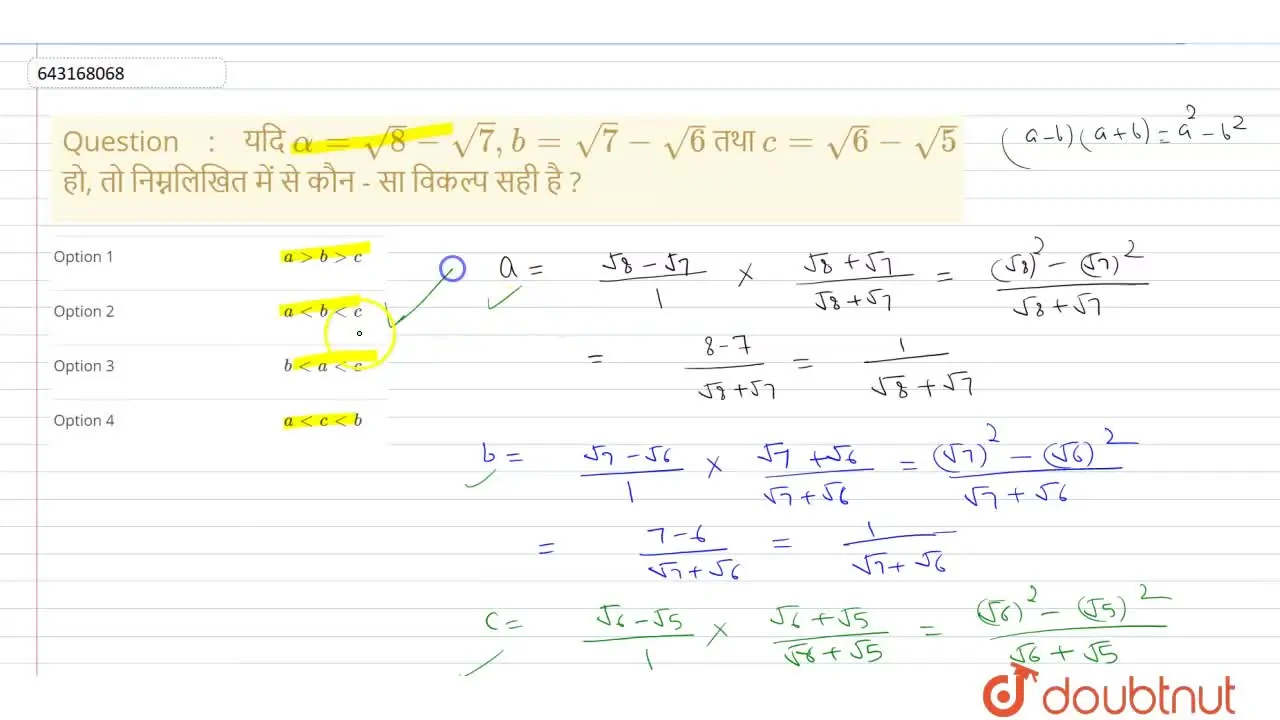 643168068
Question : यदि α = √8 − √7, b = √7 − √6 तथा c = √6 − √5
हो, तो निम्नलिखित में से कौन - सा विकल्प सही है ?
(a-b)(a+b)=a²-b²
Option 1 a > b > c
Option 2 a < b < c
Option 3 b < a < c
Option 4 a < c < b
a = (√8-√7)/1 × (√8+√7)/(√8+√7) = ((√8)²-(√7)²)/(√8+√7)
= (8-7)/(√8+√7) = 1/(√8+√7)
b = (√7-√6)/1 × (√7+√6)/(√7+√6) = ((√7)²-(√6)²)/(√7+√6)
= (7-6)/(√7+√6) = 1/(√7+√6)
c = (√6-√5)/1 × (√6+√5)/(√6+√5) = ((√6)²-(√5)²)/(√6+√5)
doubtnut